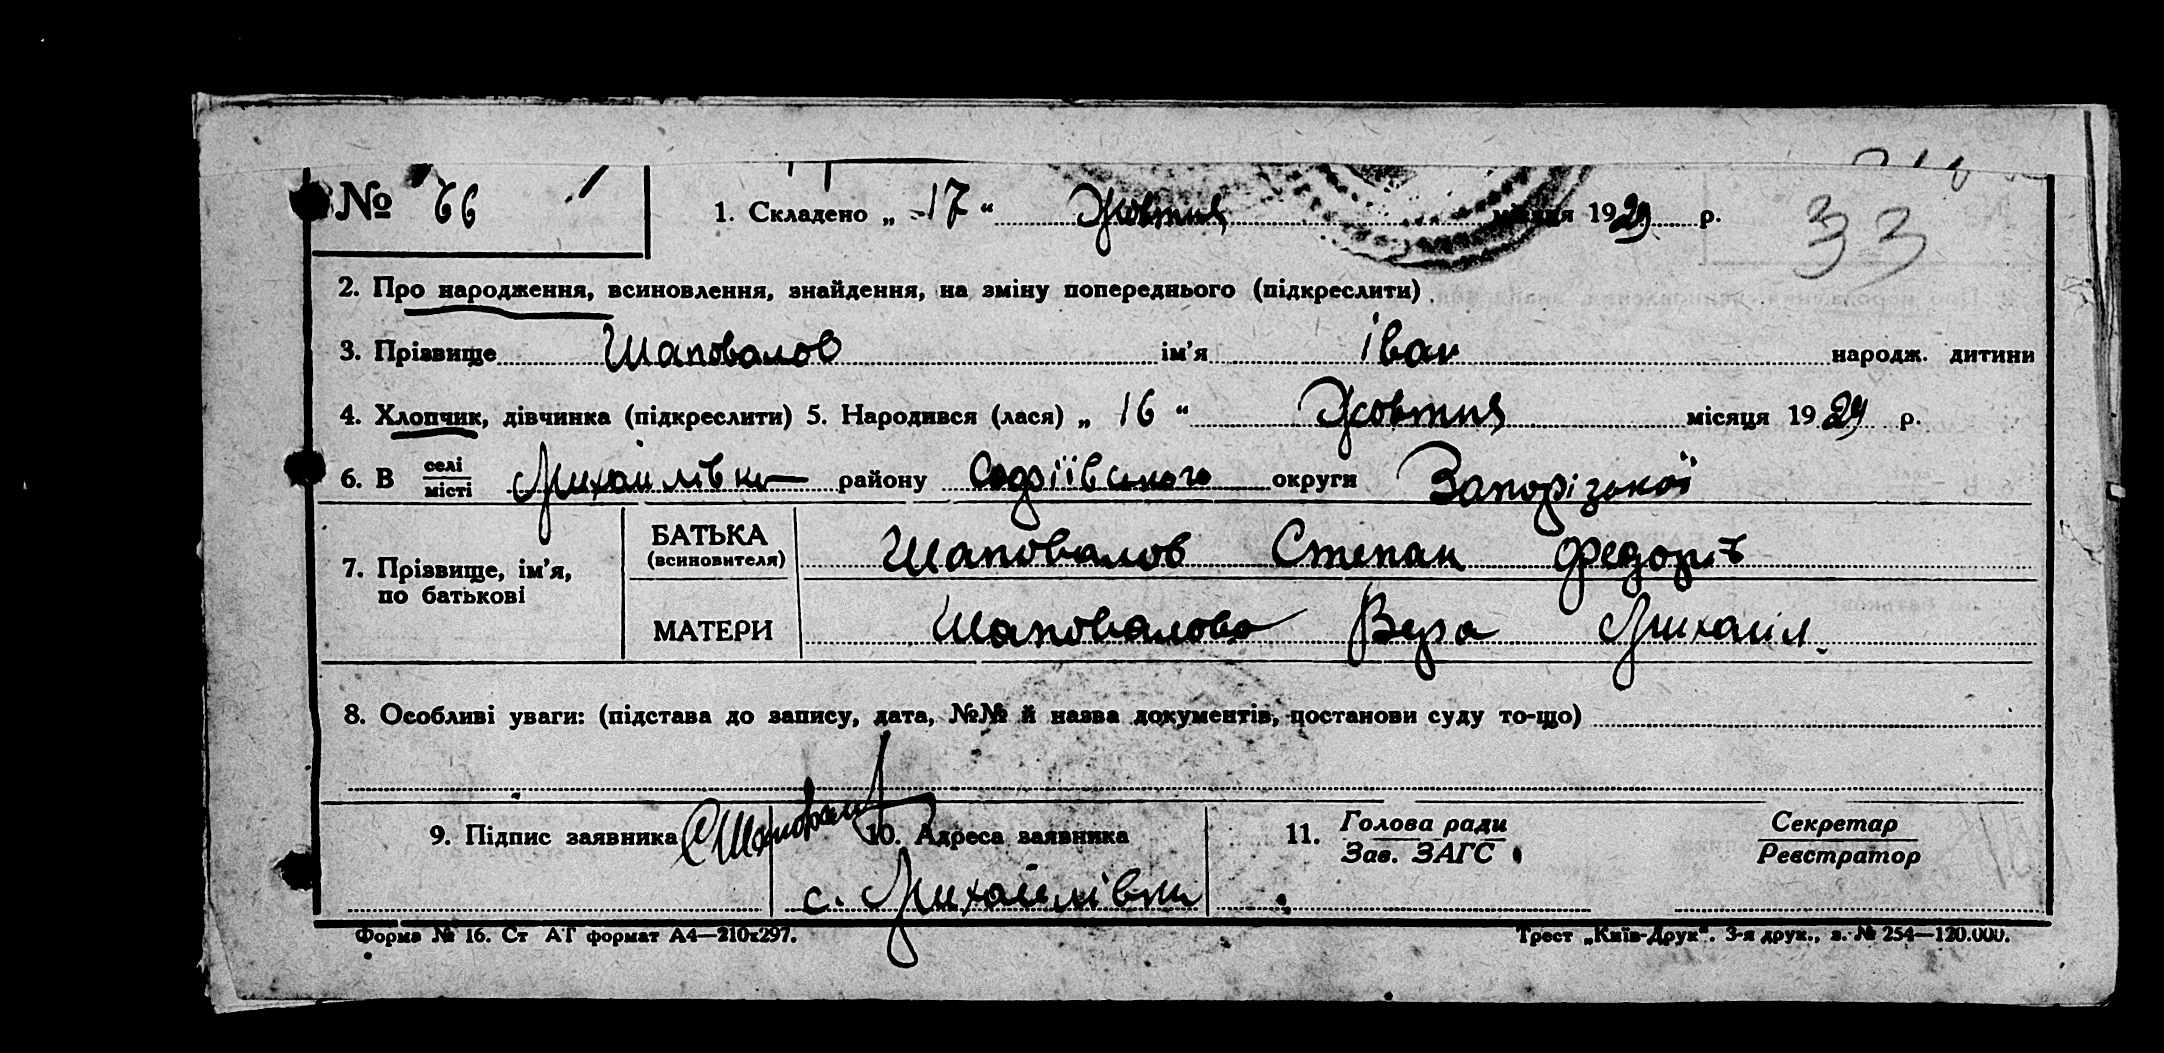 № 66 1. Складено „ 17 “ Жовтня місяця 1929 р. 33
2. Про народження, всиновлення, знайдення, на зміну попереднього (підкреслити)
3. Прізвище Шаповалов ім'я Іван народж. дитини
4. Хлопчик, дівчинка (підкреслити) 5. Народився (лася) „ 16 “ Жовтня місяця 1929 р.
6. В селі/місті Михайлівці району Софіївського округи Запорізької
7. Прізвище, ім'я, по батькові
БАТЬКА (всиновителя) Шаповалов Степан Федорів
МАТЕРИ Шаповалова Вера Михаіл.
8. Особливі уваги: (підстава до запису, дата, №№ й назва документів, постанови суду то-що)
9. Підпис заявника 10. Адреса заявника 11. Голова ради Секретар
Зав. ЗАГС Реєстратор
с. Михайлівки
Форма № 16. Ст АТ формат А4—210х297. Трест „Київ-Друк“. 3-я друк., з. № 254—120.000.